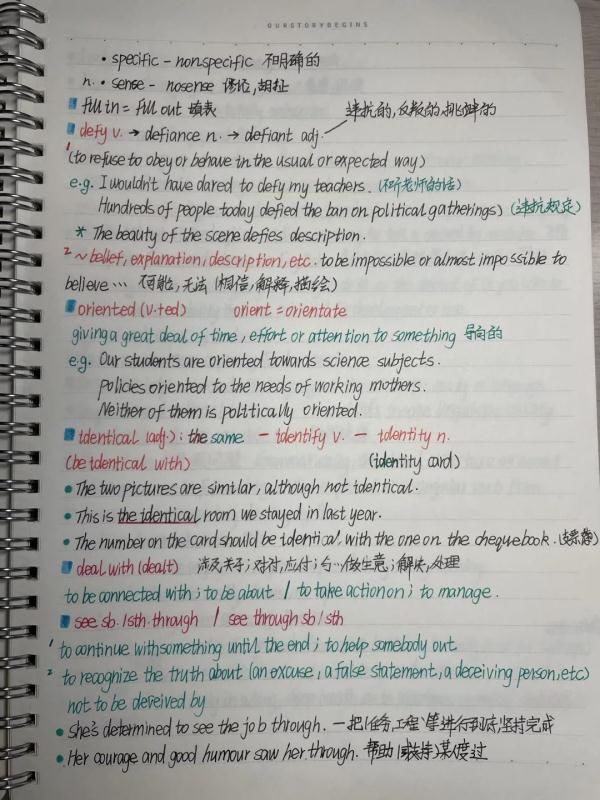 OURSTORYBEGINS
• specific - nonspecific 不明确的
n. • sense - nosense 谬论,胡扯
fill in = fill out 填表
违抗的,反叛的,挑衅的
defy v. → defiance n. → defiant adj.
1 (to refuse to obey or behave in the usual or expected way)
e.g. I wouldn't have dared to defy my teachers. (不听老师的话)
Hundreds of people today defied the ban on political gatherings) (违抗规定)
* The beauty of the scene defies description.
2 ~ belief, explanation, description, etc. to be impossible or almost impossible to
believe ... 不可能,无法 (相信,解释,描绘)
oriented (v.+ed) orient = orientate
giving a great deal of time, effort or attention to something 导向的
e.g. Our students are oriented towards science subjects.
Policies oriented to the needs of working mothers.
Neither of them is politically oriented.
identical (adj.): the same - identify v. - identity n.
(be identical with) (identity card)
• The two pictures are similar, although not identical.
• This is the identical room we stayed in last year.
• The number on the card should be identical with the one on the chequebook. (支票簿)
deal with (dealt) 涉及关于;对付,应付;与…做生意;解决,处理
to be connected with; to be about / to take action on; to manage.
see sb./sth. through / see through sb/sth
1 to continue with something until the end; to help somebody out
2 to recognize the truth about (an excuse, a false statement, a deceiving person, etc)
not to be dereived by
• She's determined to see the job through. 一把(任务,工程)等进行到底,坚持完成
• Her courage and good humour saw her through. 帮助(或支持)某人度过